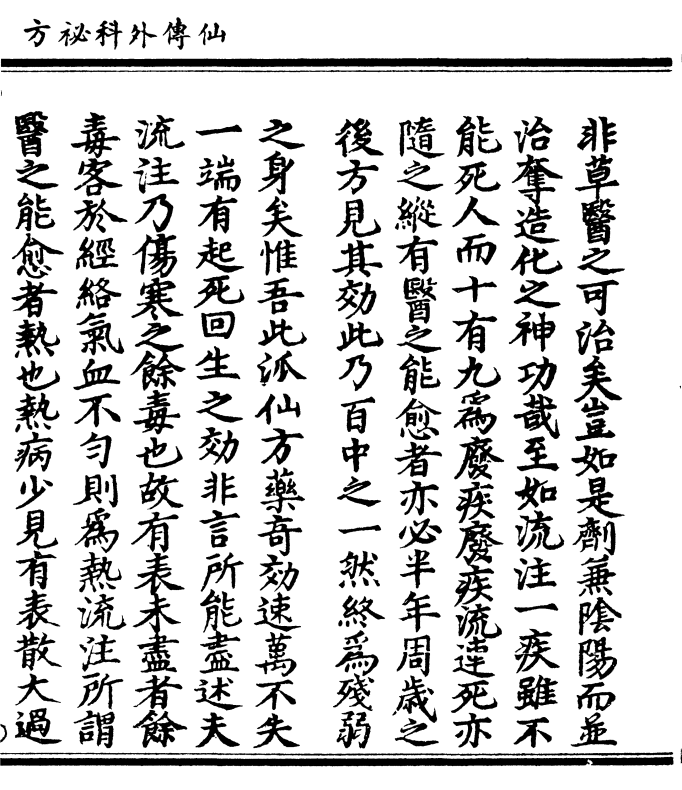 仙傳外科祕方
非草醫之可治矣豈如是劑兼陰陽而並
治奪造化之神功哉至如流注一疾雖不
能死人而十有九爲廢疾廢疾流連死亦
隨之縱有醫之能愈者亦必半年周歲之
後方見其効此乃百中之一然終爲殘弱
之身矣惟吾此派仙方藥奇効速萬不失
一端有起死回生之効非言所能盡述夫
流注乃傷寒之餘毒也故有表未盡者餘
毒客於經絡氣血不勻則爲熱流注所謂
醫之能愈者熱也熱病少見有表散大過